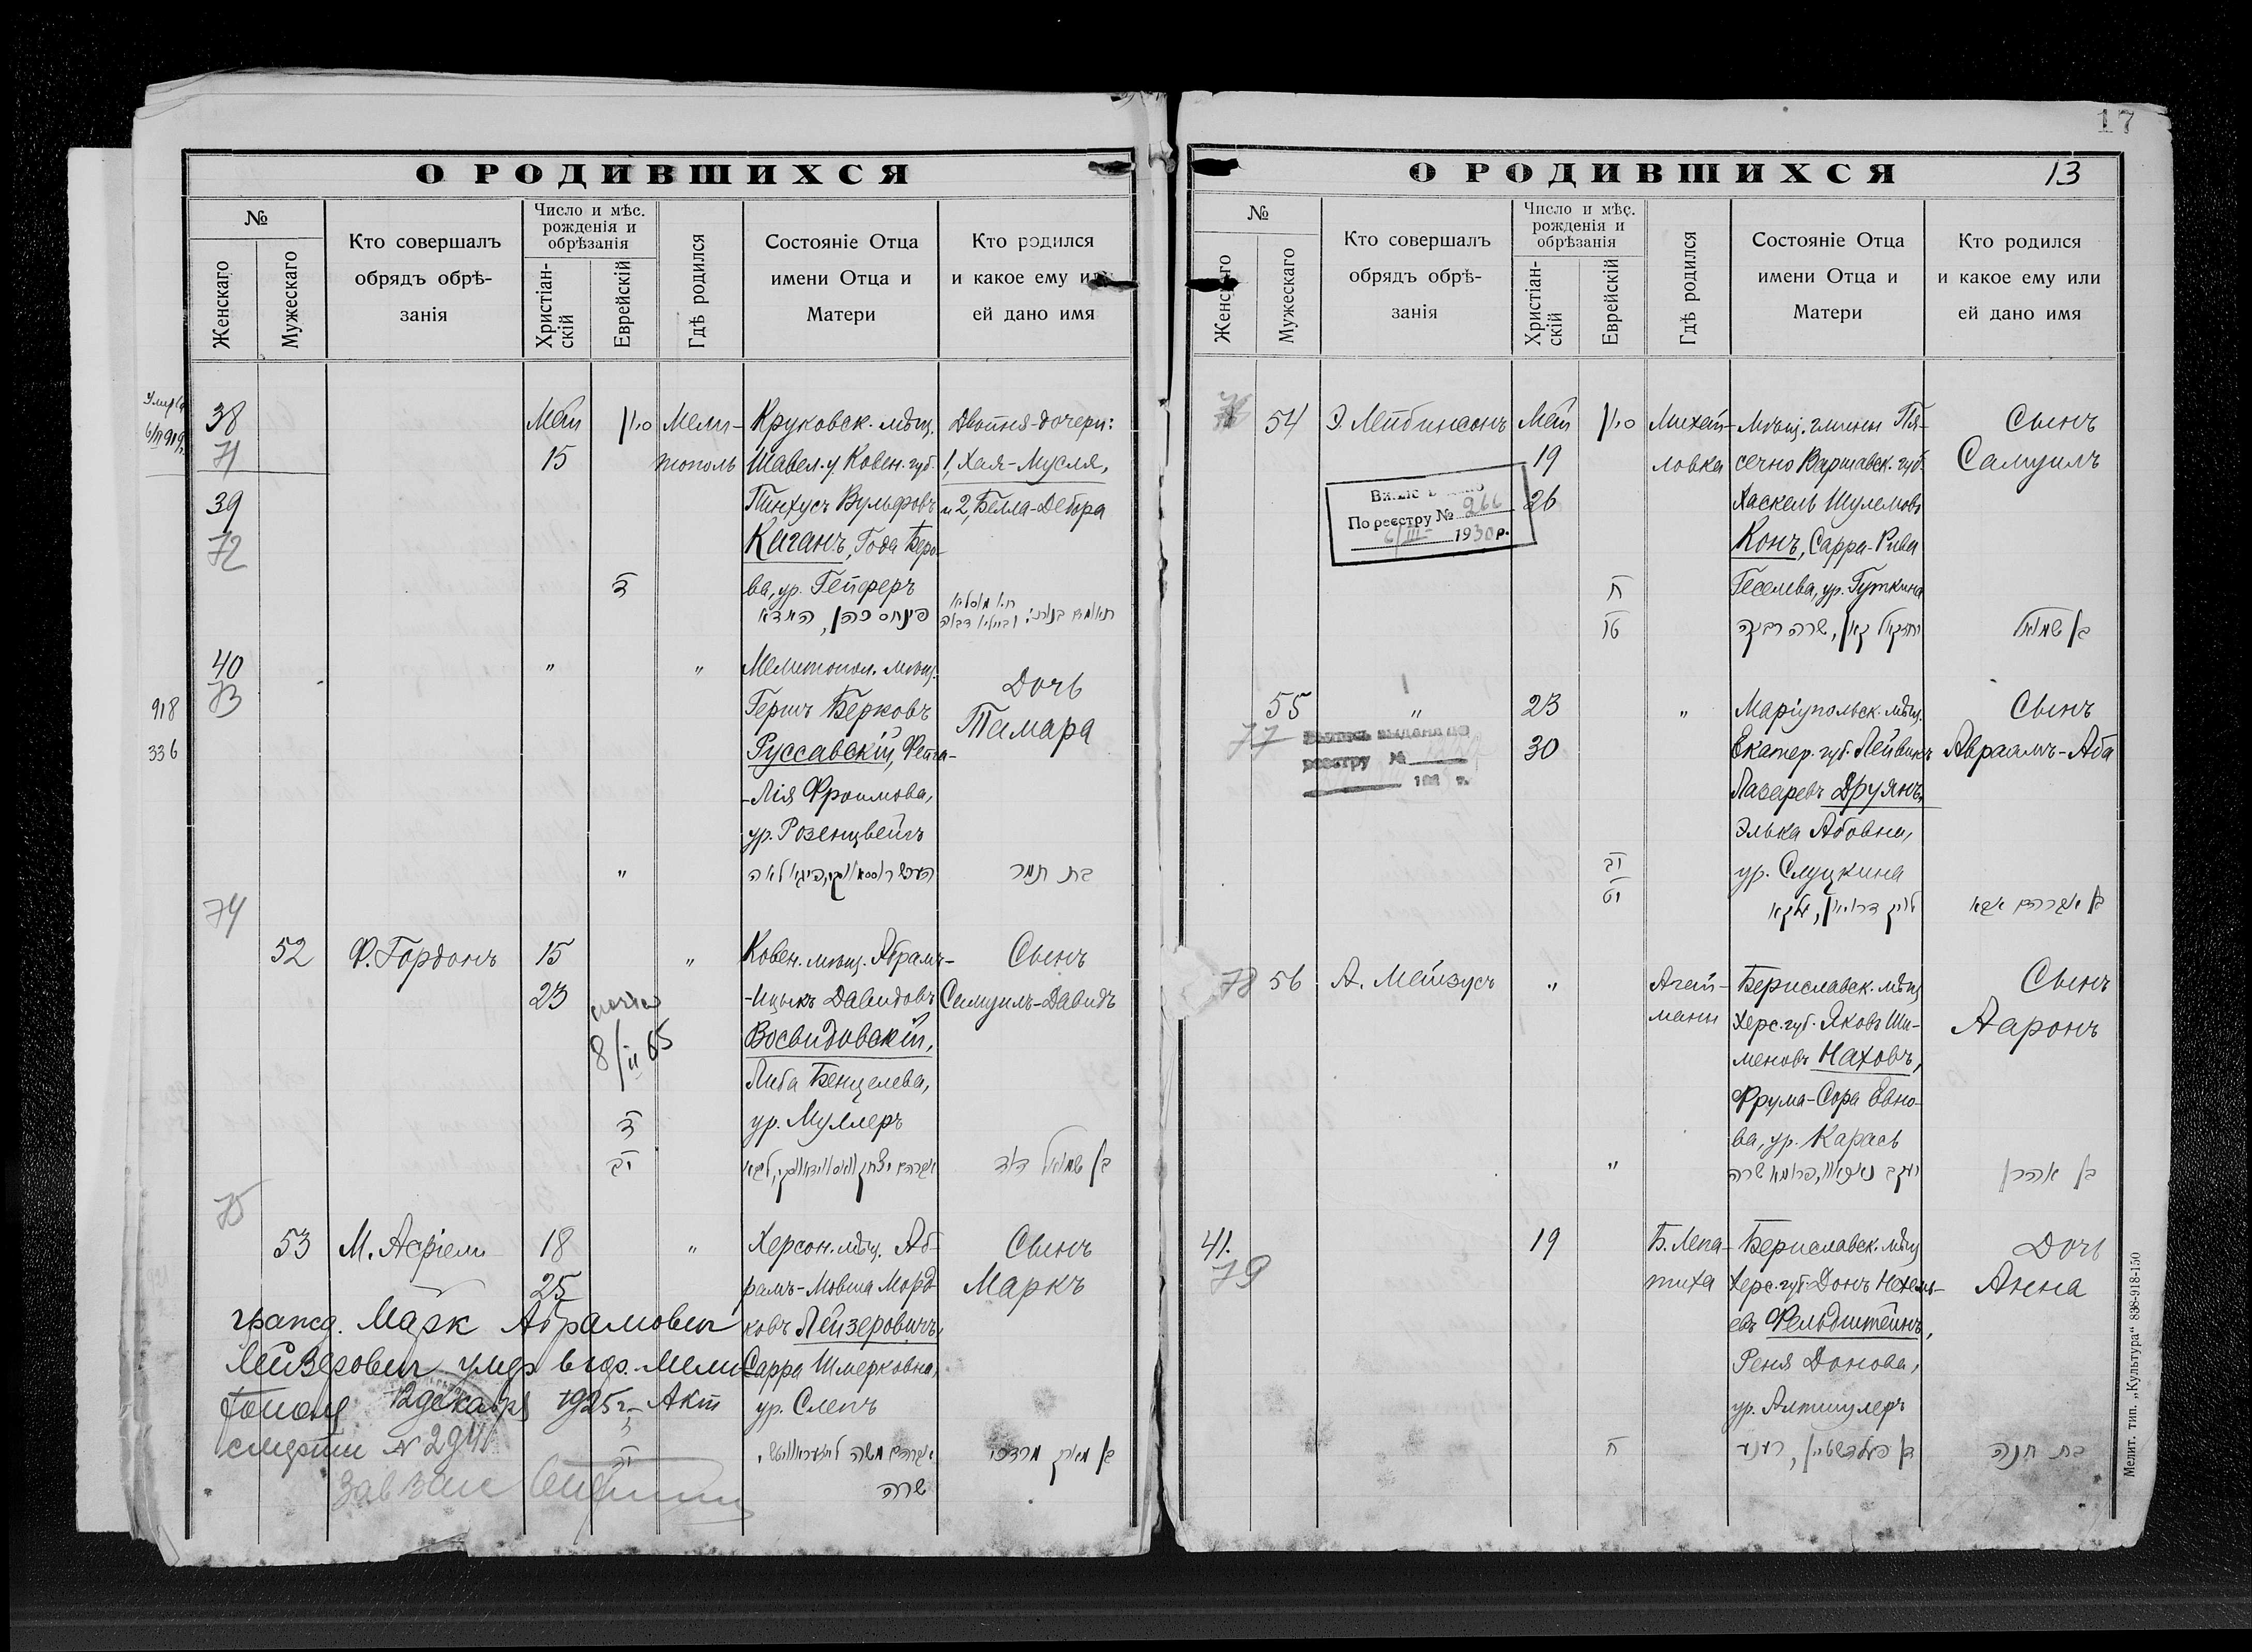 О РОДИВШИХСЯ
№
Женскаго
Мужескаго
Кто совершалъ
обрядъ обрѣ-
занія
Число и мѣс.
рожденія и
обрѣзанія
Христіан-
скій
Еврейскій
Гдѣ родился
Состояніе Отца
имени Отца и
Матери
Кто родился
и какое ему или
ей дано имя
38
71
39
72
Май
15
Мели-
тополь
Круковск. мѣщ.
Шавел. у. Ковен. губ.
Пинхусъ Вульфовъ
Каганъ, Года Беро-
ва, ур. Гепферъ
פינחס כהן,
Двойня-дочери:
1, Хая-Мусля,
и 2, Белла-Дебора
40
73
918
336
"
"
Мелитопол. мѣщ.
Гершъ Берковъ
Руссавскій, Фейга-
-Лія Фроимова,
ур. Розенцвейгъ
Дочь
Тамара
"
בת תמר
74
52
Ф. Гордонъ
15
23
"
8/II 65
Ковен. мѣщ. Абрамъ-
-Ицыкъ Давидовъ
Восвидовскій,
Либа Бенцелева,
ур. Муллеръ
Сынъ
Самуилъ-Давидъ
יב
בן שמואל דוד
75
53
М. Асріели
18
25
"
Херсон. мѣщ. Аб-
рамъ-Мовша Морд-
ковъ Лейзеровичъ,
Сарра Шмерковна,
ур. Слепъ
שרה
Сынъ
Маркъ
בן מארק מרדכי
гражд. Марк Абрамович
Лейзерович умер в гор. Мели
тополь 12 декабря 1925 г. Акт
смерти N 294
Зав Загс
17
О РОДИВШИХСЯ
13
№
Женскаго
Мужескаго
Кто совершалъ
обрядъ обрѣ-
занія
Число и мѣс.
рожденія и
обрѣзанія
Христіан-
скій
Еврейскій
Гдѣ родился
Состояніе Отца
имени Отца и
Матери
Кто родился
и какое ему или
ей дано имя
54
Э. Лейбинсонъ
Май
19
26
Михай-
ловка
Мѣщ. гмины Пя-
сечно Варшавск. губ.
Хаскель Шулемовъ
Конъ, Сарра-Рива
Геселева, ур. Гуткина
Сынъ
Самуилъ
По реєстру № 266
6/III 1930 р.
ח
טו
יחזקאל קאן, שרה רבקה
בן שמואל
55
77
"
23
30
"
реестру №
Маріупольск. мѣщ.
Екатер. губ. Лейвикъ
Лазаревъ Друянъ,
Элька Абовна,
ур. Слуцкина
Сынъ
Авраамъ-Аба
יב
יט
בן אברהם אבא
78
56
А. Мейзусъ
"
Агай-
маны
Бериславск. мѣщ.
Херс. губ. Яковъ Ши-
меновъ Наховъ,
Фрума-Сора Евно-
ва, ур. Карась
Сынъ
Ааронъ
"
בן אהרן
41.
79
19
Б. Лепа-
тиха
Бериславск. мѣщ.
Херс. губ. Донъ Нехемь-
евъ Фельдштейнъ,
Реня Донова,
ур. Алтшулеръ
Дочь
Анна
ח
דן פעלדשטיין, רענע
בת חנה
Мелит. тип. „Культура“ 838-918-150